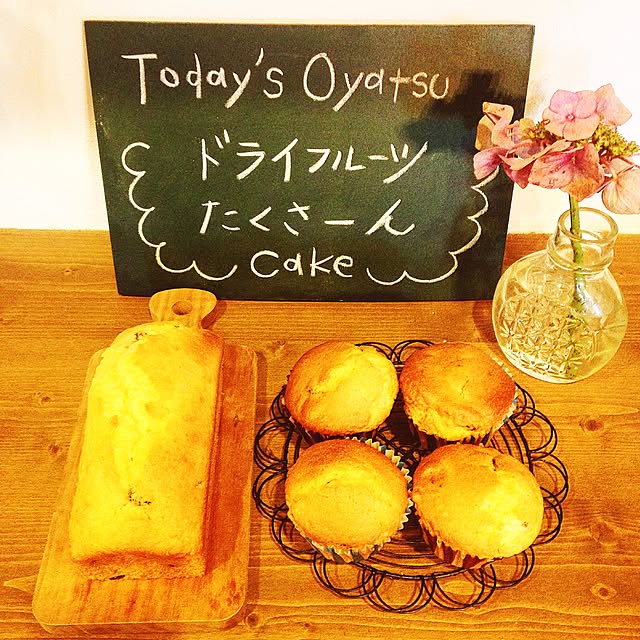 Today's Oyatsu
ドライフルーツ
たくさーん
cake